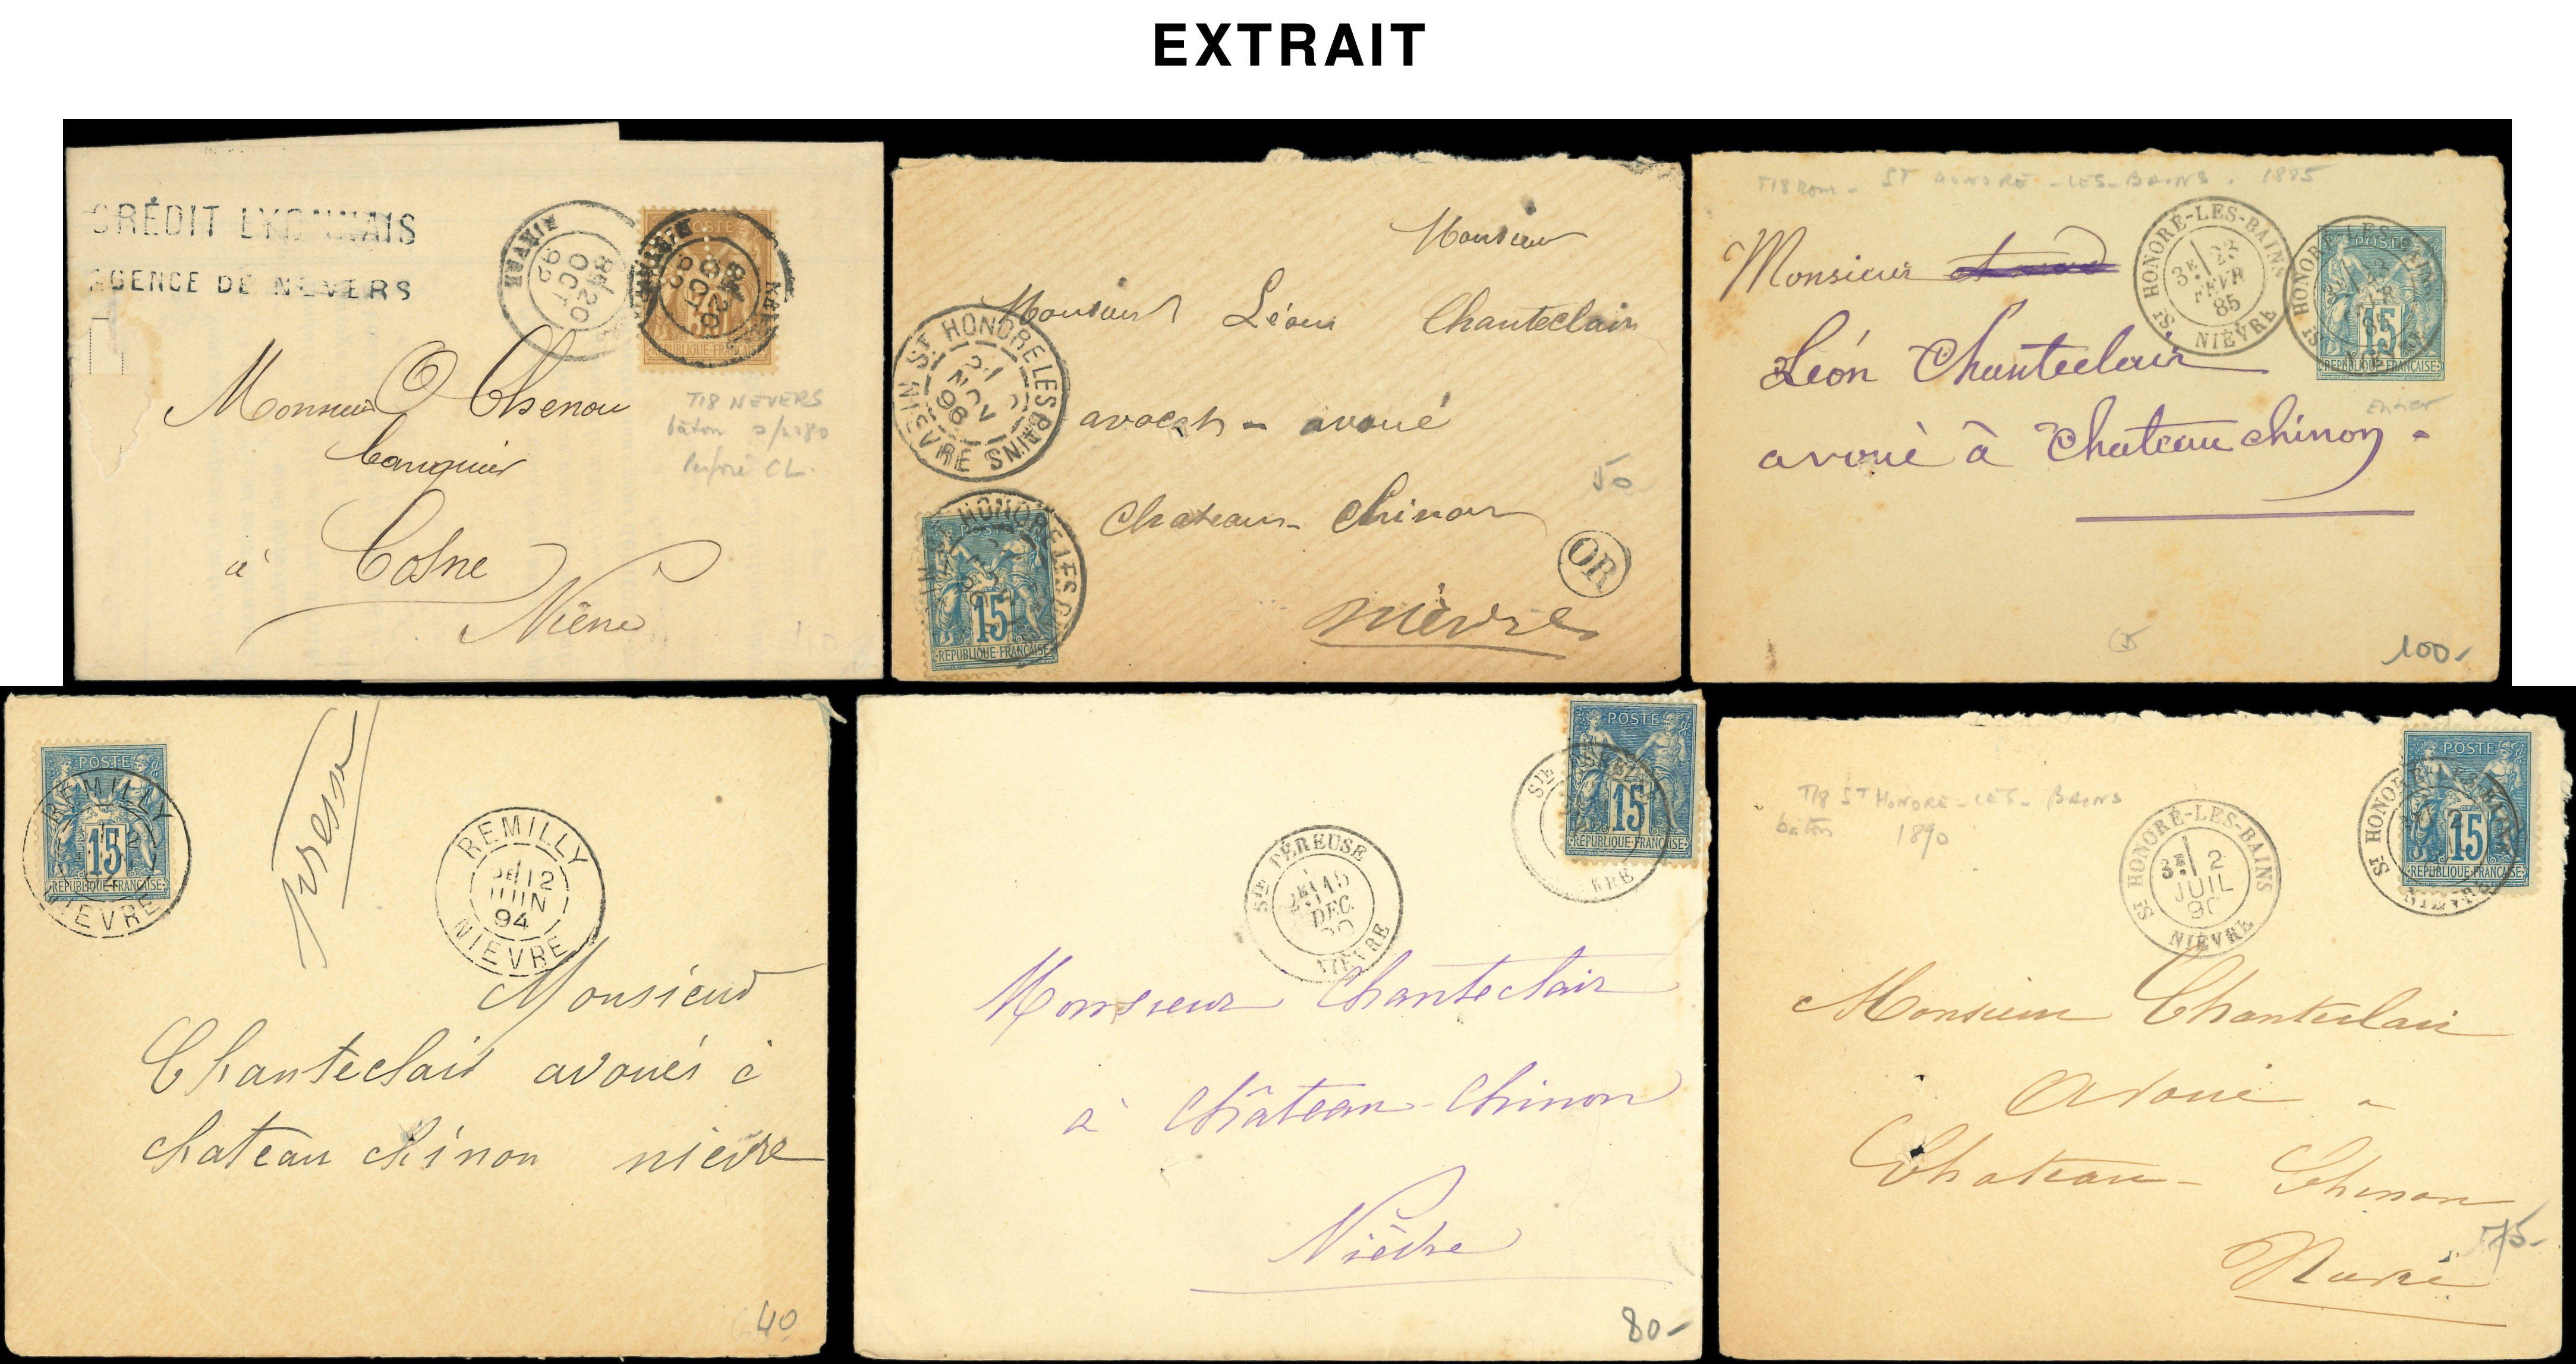 EXTRAIT
CRÉDIT LYONNAIS
AGENCE DE NEVERS
8E 20
OCT
92
POSTE
REPUBLIQUE FRANCAISE
Monsieur Chenou
banquier
à Cosne
Nièvre
T18 NEVERS
bâton
Perforé CL.
Monsieur
Monsieur Léon Chanteclair
avocat - avoué
Chateau - Chinon
Nièvre
ST HONORE LES BAINS
21
NOV
96
NIEVRE
HONORE LES
POSTE
15
REPUBLIQUE FRANCAISE
50
OR
T18 Rom - ST HONORÉ - LES - BAINS. 1885
Monsieur
Léon Chanteclair
avoué à Chateau chinon -
ST HONORÉ-LES-BAINS
3E 23
FEVR
85
NIÈVRE
POSTE
15
REPUBLIQUE FRANCAISE
Entier
100-
POSTE
15
REPUBLIQUE FRANCAISE
REMILLY
NIEVRE
presse
REMILLY
12
JUIN
94
NIEVRE
Monsieur
Chanteclair avoués à
chateau chinon nievre
40
POSTE
15
REPUBLIQUE FRANCAISE
STE PÉREUSE
2E 15
DEC.
NIÈVRE
Monsieur Chanteclair
à Château-Chinon
Nièvre
80-
T18 ST HONORÉ - LES - BAINS
bâton 1890
ST HONORÉ-LES-BAINS
3E 2
JUIL
90
NIÈVRE
POSTE
15
REPUBLIQUE FRANCAISE
Monsieur Chanteclair
Avoué -
Chateau - Chinon
75-